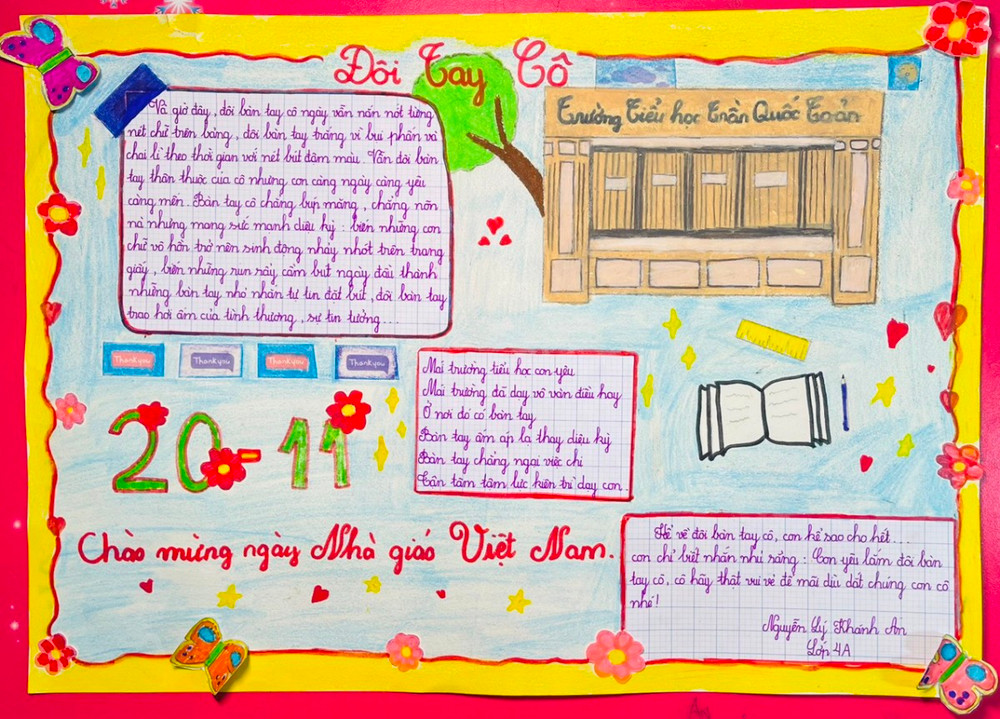 Đôi Tay Cô
Trường Tiểu học Trần Quốc Toản
Và giờ đây, đôi bàn tay cô ngày vẫn nắn nót từng
nét chữ trên bảng, đôi bàn tay trắng vì bụi phấn và
chai lì theo thời gian với nét bút đậm màu. Vẫn đôi bàn
tay thân thuộc của cô nhưng con càng ngày càng yêu
càng mến. Bàn tay cô chẳng búp măng, chẳng nõn
nà nhưng mang sức mạnh diệu kỳ : biến những con
chữ vô hồn trở nên sinh động nhảy nhót trên trang
giấy, biến những run rẩy cầm bút ngày đầu thành
những bàn tay nhỏ nhắn tự tin đặt bút, đôi bàn tay
trao hơi ấm của tình thương, sự tin tưởng...
Thank you
Thank you
Thank you
Thank you
Mái trường tiểu học con yêu
Mái trường đã dạy vô vàn điều hay
Ở nơi đó có bàn tay
Bàn tay ấm áp lạ thay diệu kỳ
Bàn tay chẳng ngại việc chi
Tận tâm tâm lực kiên trì dạy con.
20-11
Chào mừng ngày Nhà giáo Việt Nam.
Kể về đôi bàn tay cô, con kể sao cho hết...
con chỉ biết nhắn nhủ rằng : Con yêu lắm đôi bàn
tay cô, cô hãy thật vui vẻ để mãi dìu dắt chúng con cô
nhé!
Nguyễn Lý Khánh An
Lớp 4A